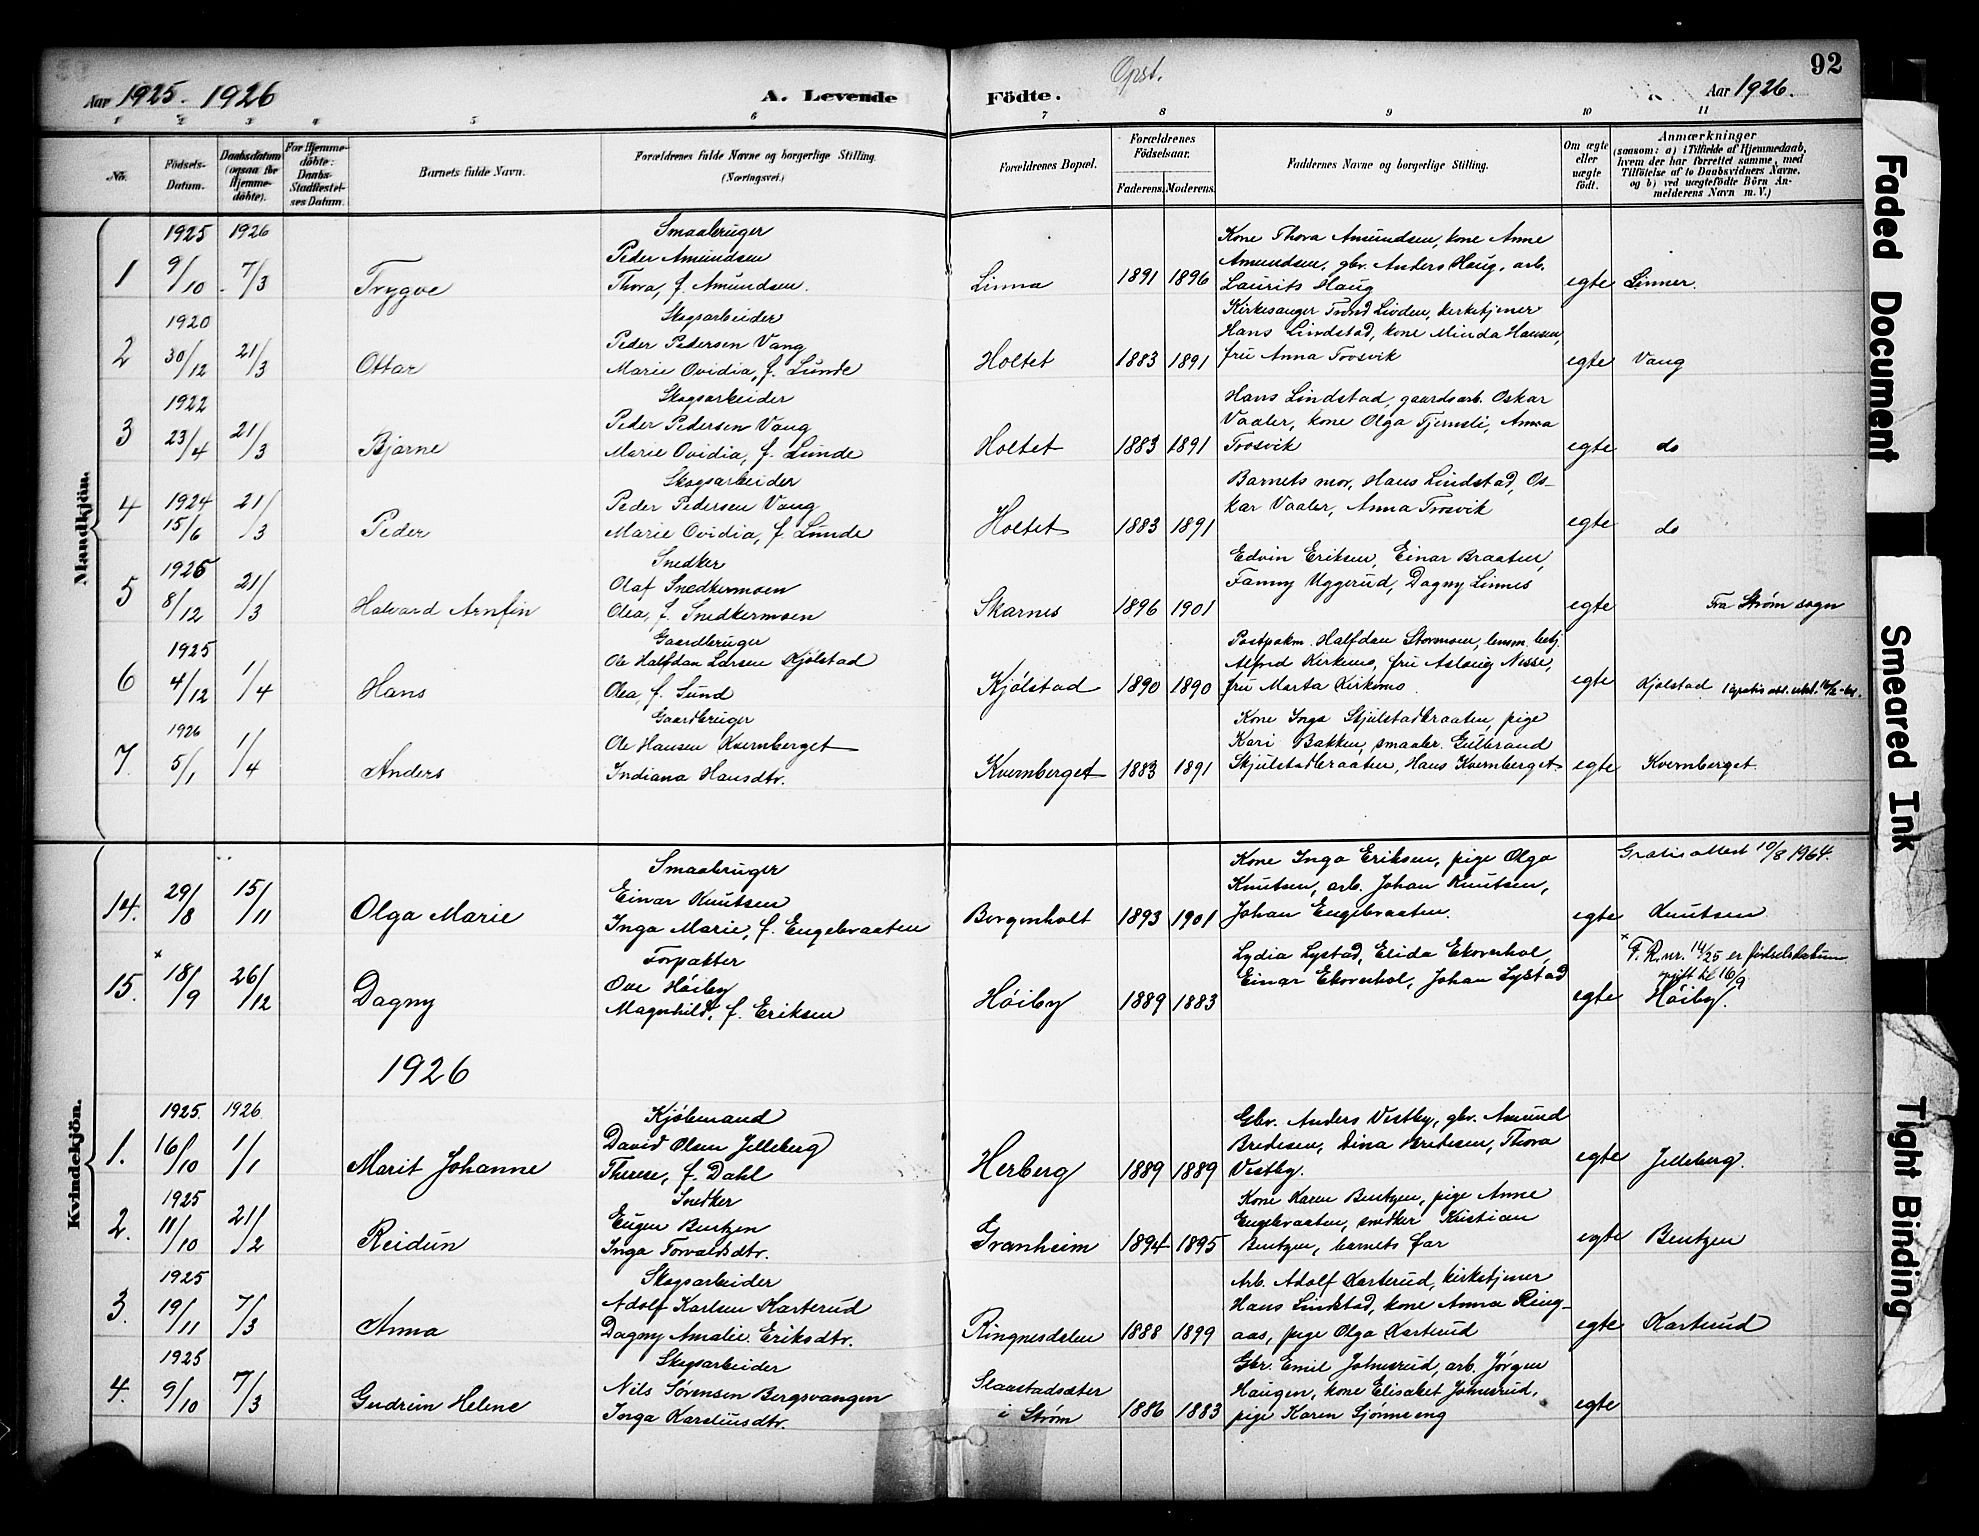 Aar 1925. 1926
A. Levende
Födte.
Opst.
92
Aar 1926.
1 2 3 4 5 6 7 8 9 10 11
No.
Födsels-
Datum.
Daabsdatum
(ogsaa för
Hjemme-
döbte).
For Hjemme-
döbte:
Daabs-
Stadfæstel-
ses Datum.
Barnets fulde Navn.
Forældrenes fulde Navne og borgerlige Stilling.
(Næringsvei.)
Forældrenes Bopæl.
Forældrenes
Födselsaar.
Faderens. Moderens.
Faddernes Navne og borgerlige Stilling.
Om ægte
eller
uægte
födt.
Anmærkninger
(saasom: a) i Tilfælde af Hjemmedaab,
hvem der har forrettet samme, med
Tilföielse af to Daabsvidners Navne.
og b) ved uægtefödte Börn An-
melderens Navn m. V.)
Mandkjön.
1
1925 9/10
1926 7/3
Trygve
Smaabruger
Peder Amundsen
Thora, f. Amundsen.
Linna
1891 1896
Kone Thora Amundsen, kone Anne
Amundsen, gbr. Anders Haug, arb.
Laurits Haug
egte
Linner.
2
1920 30/12
21/3
Ottar
Skogsarbeider
Peder Pedersen Vang
Marie Ovidia, f. Lunde
Holtet
1883 1891
Kirkesanger Trond Livden, kirketjener
Hans Lindstad, kone Minda Hansen,
fru Anna Trosvik
egte
Vang
3
1922 23/4
21/3
Bjarne
Skogsarbeider
Peder Pedersen Vang
Marie Ovidia, f. Lunde
Holtet
1883 1891
Hans Lindstad, gaardsarb. Oskar
Vaaler, kone Olga Tjernsli, Anna
Trosvik
egte
do
4
1924 15/6
21/3
Peder
Skogsarbeider
Peder Pedersen Vang
Marie Ovidia, f. Lunde
Holtet
1883 1891
Barnets mor, Hans Lindstad, Os-
kar Vaaler, Anna Trosvik
egte
do
5
1925 8/12
21/3
Halvard Arnfin
Snedker
Olaf Snedkermoen
Olea, f. Snedkermoen
Skarnes
1896 1901
Edvin Eriksen, Einar Braaten,
Fanny Uggerud, Dagny Linnes
egte
Fra Strøm sogn
6
1925 4/12
1/4
Hans
Gaardbruger
Ole Halfdan Larsen Kjölstad
Olea, f. Sund
Kjölstad
1890 1890
Postpakm. Halfdan Stormoen, lensm. betj.
Alfred Kirkemo, fru Aslaug Nesse,
fru Marta Kirkemo.
egte
Kjølstad
7.
1926 5/1
1/4
Anders
Gaardbruger
Ole Hansen Kvernberget
Indiana Hansdtr.
Kvernberget
1883 1891
Kone Inga Skjulstadbraaten, pige
Kari Bakken, smaabr. Gulbrand
Skjulstadbraaten, Hans Kvernberget.
egte
Kvernberget.
Kvindekjön.
14.
29/8
15/11
Olga Marie
Smaabruger
Einar Knutsen
Inga Marie, f. Engebraaten
Borgenholt
1893 1901
Kone Inga Eriksen, pige Olga
Knutsen, arb. Johan Knutsen,
Johan Engebraaten.
egte
Gratis attest 10/8 1964.
Knutsen
15.
* 18/9
26/12
Dagny
Forpakter
Ove Höiby
Magnhild, f. Eriksen
Höiby
1889 1883
Lydia Lystad, Elida Ekoverhol,
Einar Ekoverhol, Johan Lystad
egte
* F. R. nr. 14/25 er fødselsdatum
opgitt til 16/9
Höiby.
1926
1.
1925. 16/10
1926 1/1
Marit Johanne
Kjöbmand
David Olsen Jelleberg
Therese, f. Dahl
Herberg
1889 1889
Gbr. Anders Vestby, gbr. Amund
Bredesen, Dina Bredesen, Thora
Vestby.
egte
Jelleberg.
2.
1925 11/10
21/2
Reidun
Snedker
Eugen Bentzen
Inga Torvaldsdtr.
Granheim
1894 1895
Kone Karen Bentzen, pige Anne
Engebraaten, snedker Kristian
Bentzen, barnets far
egte
Bentzen
3.
1925 19/11
7/3
Anna
Skogsarbeider
Adolf Karlsen Karterud
Dagny Amalie Eriksdtr.
Ringnesdalen
1888 1899
Arb. Adolf Karterud, kirketjener
Hans Lindstad, kone Anna Ring-
aas, pige Olga Karterud
egte
Karterud
4.
1925 9/10
7/3
Gudrun Helene
Skogsarbeider
Nils Sørensen Bergsvangen
Inga Kareliusdtr.
Slaastadsæter
i Strøm
1886 1883
Gbr. Emil Johnsrud, arb. Jörgen
Haugen, kone Elisabet Johnsrud,
pige Karen Sjönnereng
egte
Faded Document
Smeared Ink
Tight Binding